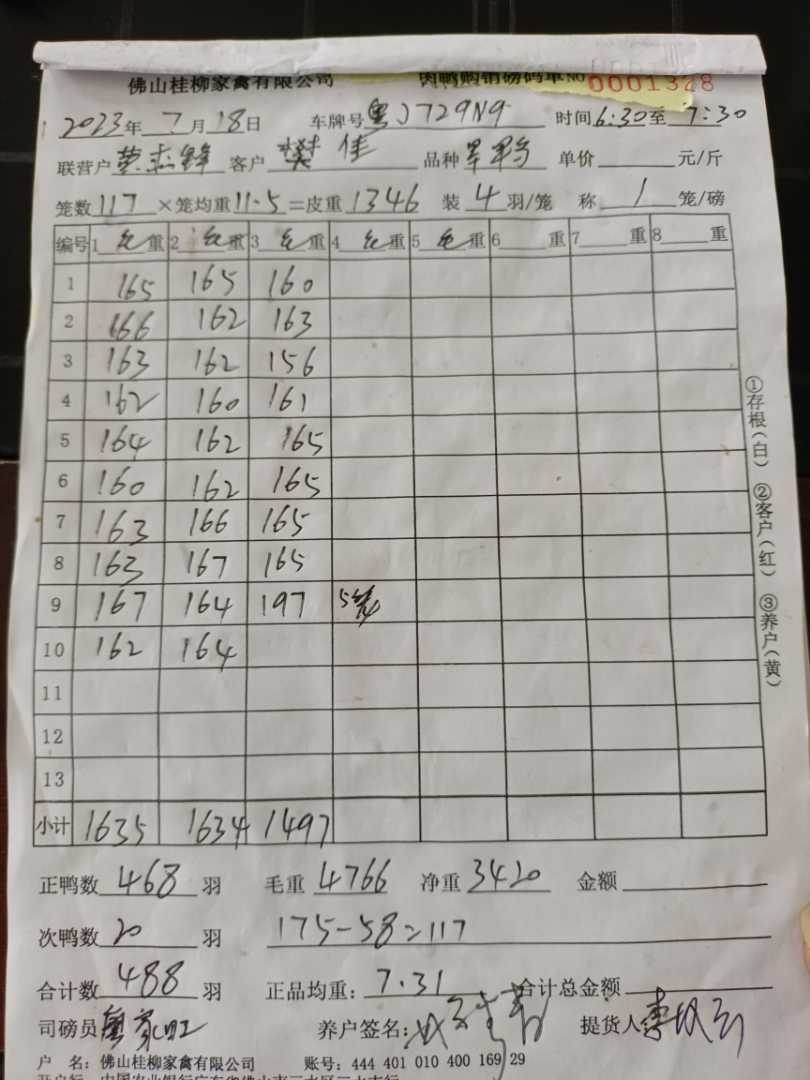 佛山桂柳家禽有限公司 肉鸭购销磅码单 NO 0001328
2023年 7月 18日 车牌号 粤J729N9 时间 6:30至 7:30
联营户 黄志锋 客户 樊佳 品种 单价 元/斤
笼数 117 ×笼均重 11.5 =皮重 1346 装 4 羽/笼 称 1 笼/磅
编号 1 毛 重 2 毛 重 3 毛 重 4 毛 重 5 毛 重 6 重 7 重 8 重
1 165 165 160
2 166 162 163
3 163 162 156
4 162 160 161
5 164 162 165
6 160 162 165
7 163 166 165
8 163 167 165
9 167 164 197 5笼
10 162 164
11
12
13
小计 1635 1634 1497
①存根(白) ②客户(红) ③养户(黄)
正鸭数 468 羽 毛重 4766 净重 3420 金额
次鸭数 20 羽 175-58=117
合计数 488 羽 正品均重: 7.31 合计总金额
司磅员 养户签名: 提货人
户 名: 佛山桂柳家禽有限公司 账号: 444 401 010 400 169 29